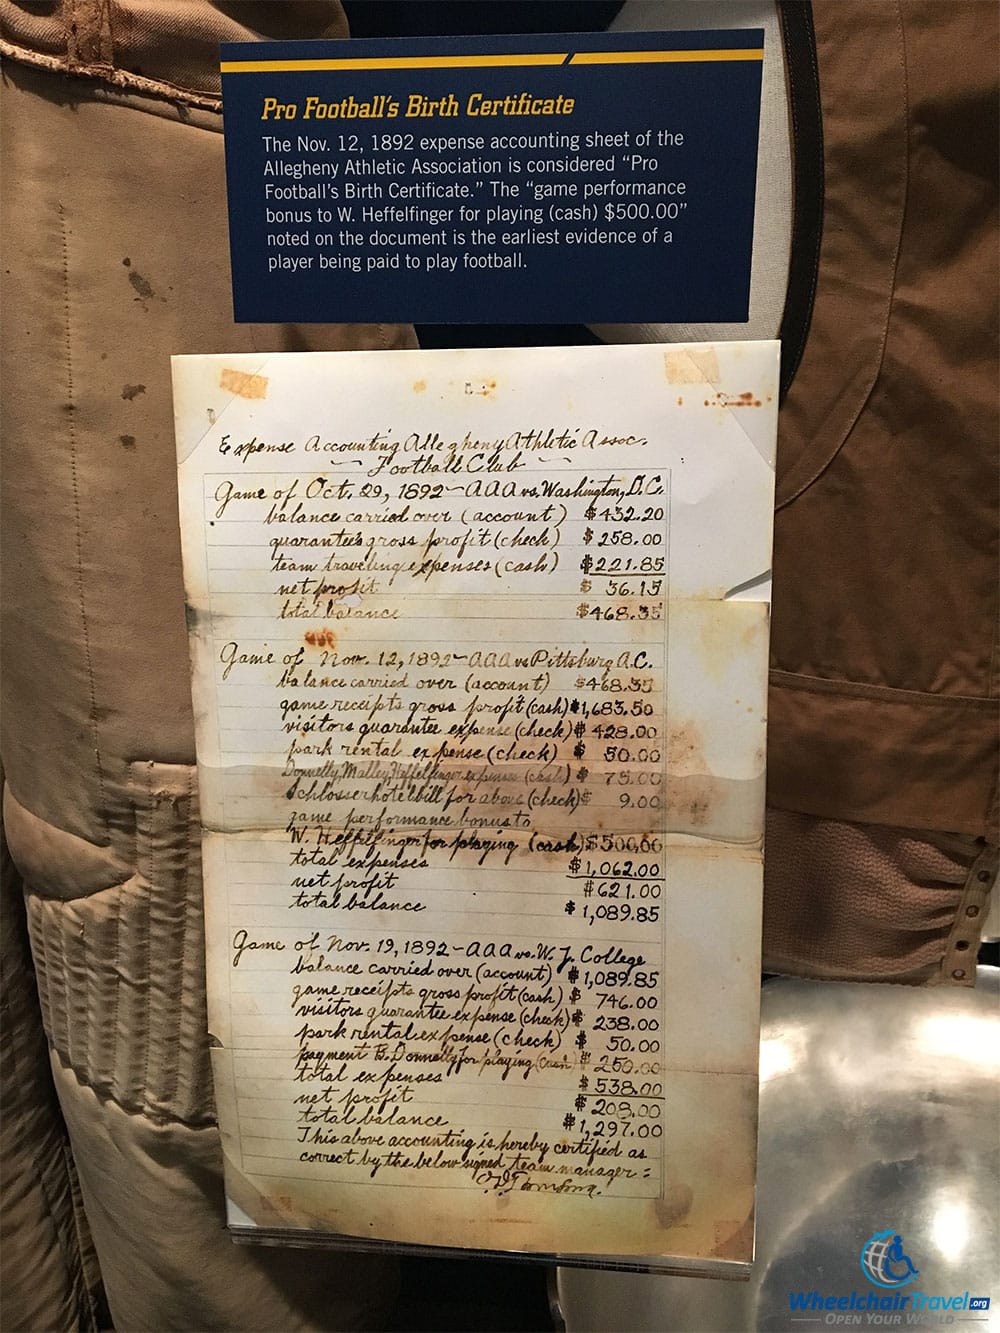 Pro Football's Birth Certificate
The Nov. 12, 1892 expense accounting sheet of the
Allegheny Athletic Association is considered “Pro
Football's Birth Certificate.” The “game performance
bonus to W. Heffelfinger for playing (cash) $500.00”
noted on the document is the earliest evidence of a
player being paid to play football.
Expense Accounting Allegheny Athletic Assoc.
Football Club
Game of Oct. 29, 1892 – AAA vs. Washington, D.C.
balance carried over (account) $432.20
guarantee's gross profit (check) $258.00
team traveling expenses (cash) $221.85
net profit $36.15
total balance $468.35
Game of Nov. 12, 1892 – AAA vs Pittsburg A.C.
balance carried over (account) $468.35
game receipts gross profit (cash) $1,683.50
visitors guarantee expense (check) $428.00
park rental expense (check) $50.00
Donnelly, Malley, Heffelfinger expenses (cash) $75.00
Schlosser hotel bill for above (check) $9.00
game performance bonus to
W. Heffelfinger for playing (cash) $500.00
total expenses $1,062.00
net profit $621.00
total balance $1,089.85
Game of Nov. 19, 1892 – AAA vs. W. J. College
balance carried over (account) $1,089.85
game receipts gross profit (cash) $746.00
visitors guarantee expense (check) $238.00
park rental expense (check) $50.00
payment B. Donnelly for playing (cash) $250.00
total expenses $538.00
net profit $208.00
total balance $1,297.00
This above accounting is hereby certified as
correct by the below signed team manager:
WheelchairTravel.org
OPEN YOUR WORLD